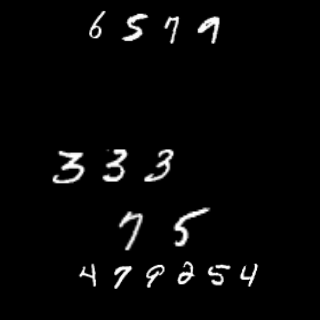 6579
333
75
479254